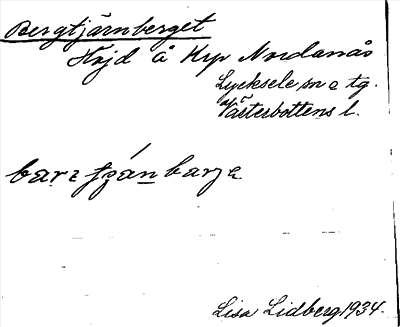 Bergtjärnberget
Höjd å Krp Nordanås
Lycksele sn o tg.
Västerbottens l.
Lisa Lidberg 1934.